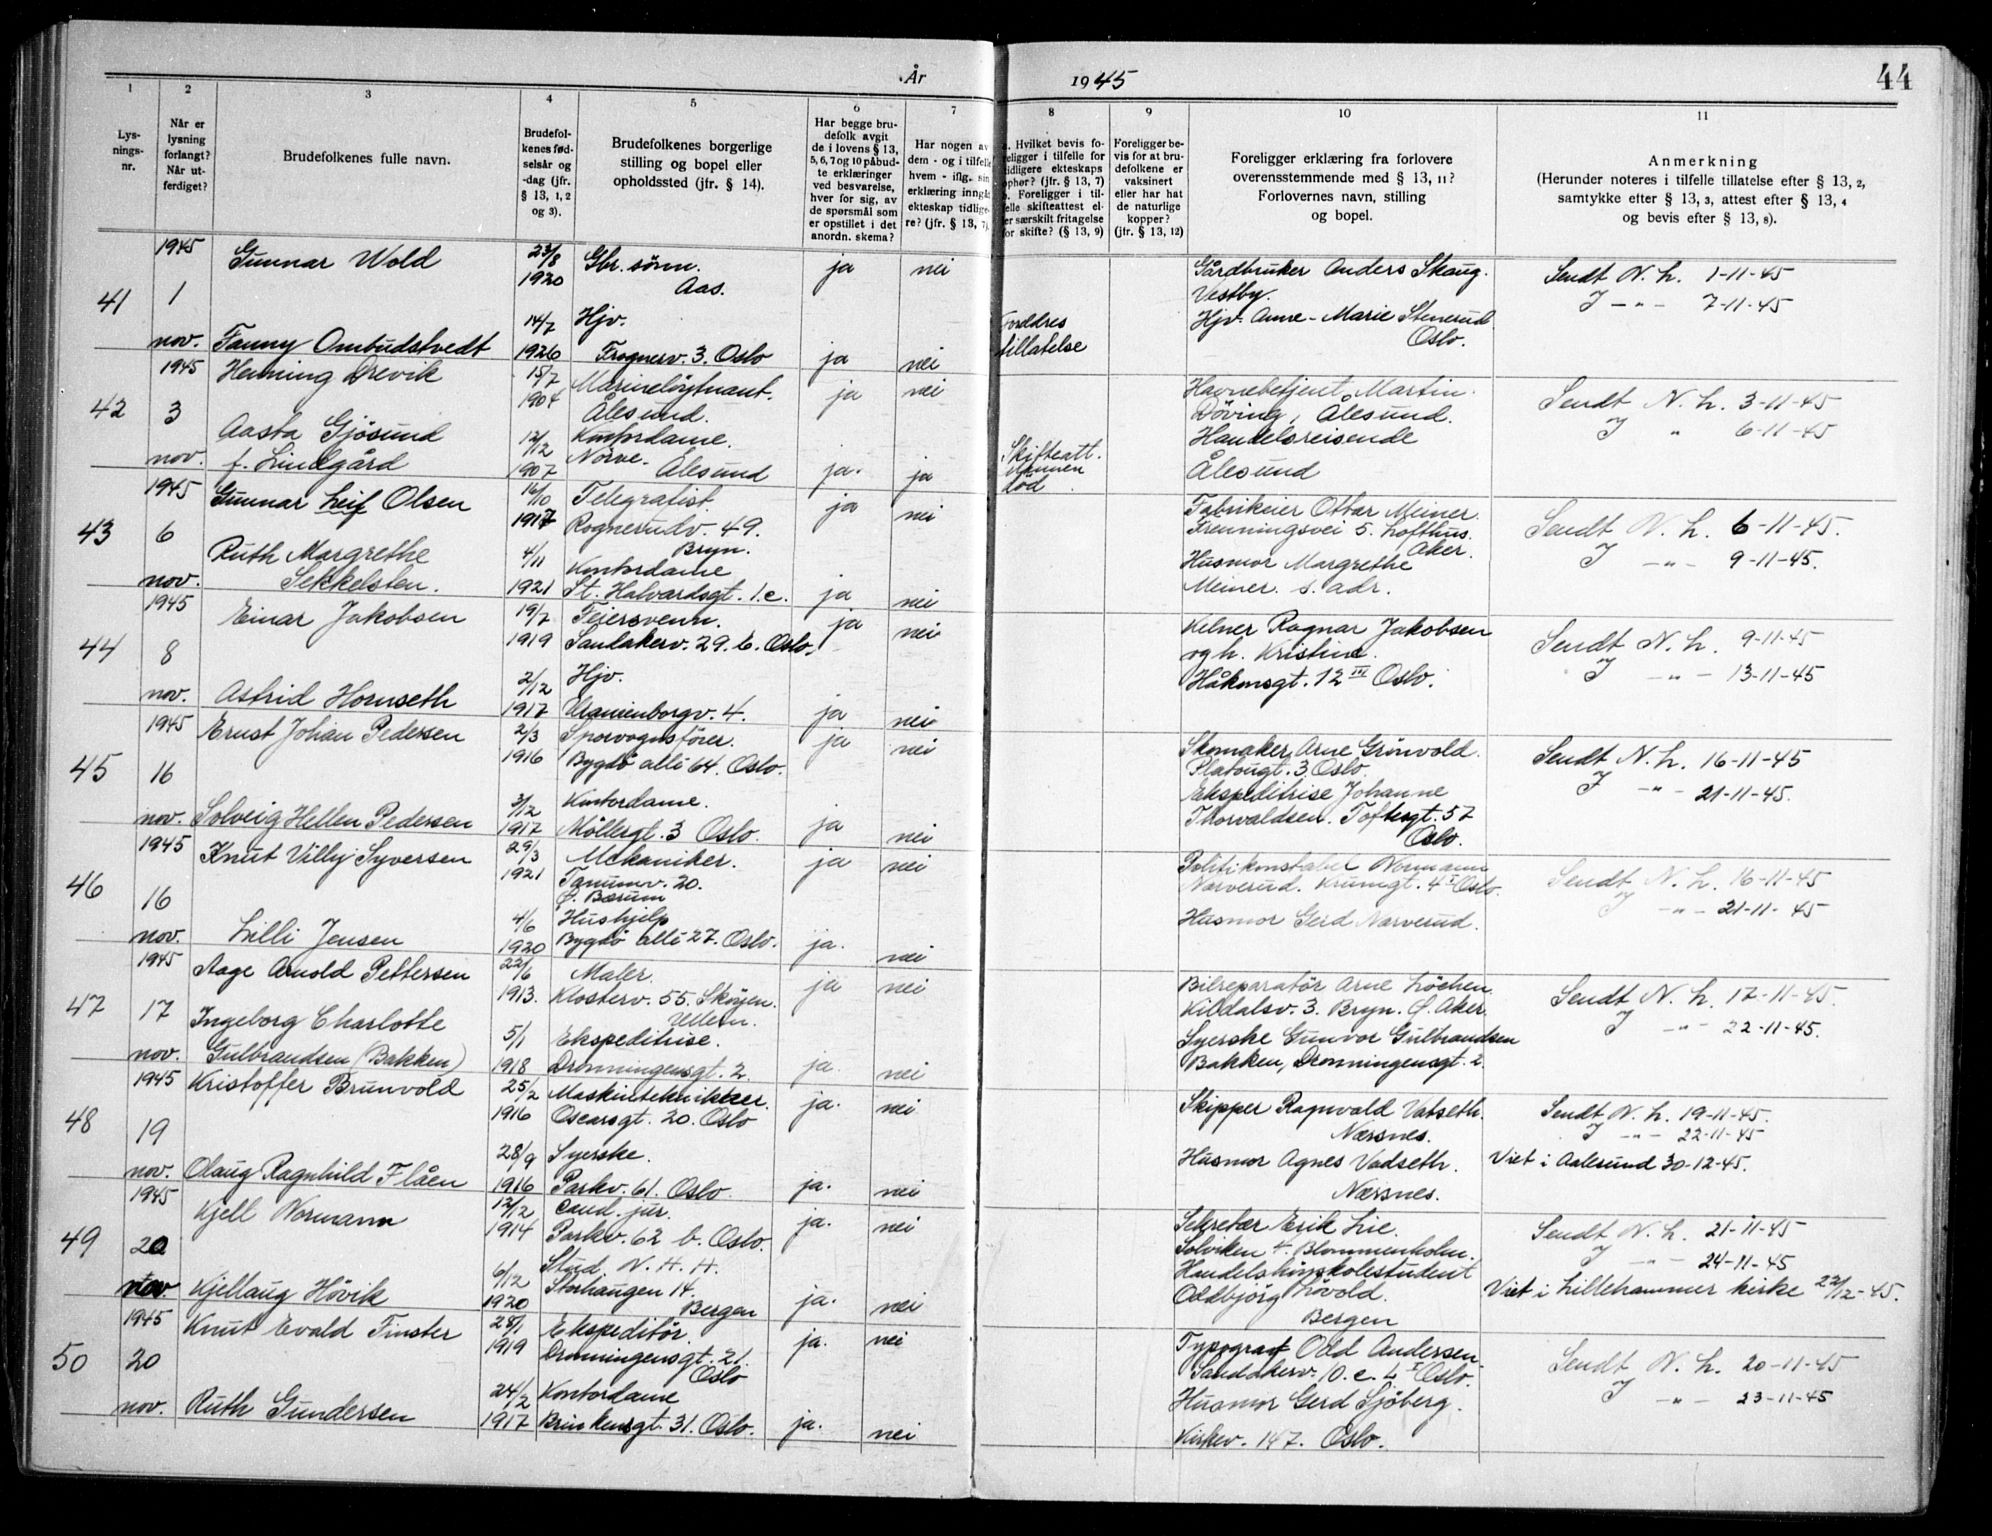 År 1945
44
1 2 3 4 5 6 7 8 9 10 11
Lys-
nings-
nr.
Når er
lysning
forlangt?
Når ut-
ferdiget?
Brudefolkenes fulle navn.
Brudefol-
kenes fød-
selsår og
-dag (jfr.
§ 13, 1, 2
og 3).
Brudefolkenes borgerlige
stilling og bopel eller
opholdssted (jfr. § 14).
Har begge bru-
defolk avgit
de i lovens § 13,
5, 6, 7 og 10 påbud-
te erklæringer
ved besvarelse,
hver for sig, av
de spørsmål som
er opstillet i det
anordn. skema?
Har nogen av
dem - og i tilfelle
hvem - iflg. sin
erklæring inngåt
ekteskap tidlige-
re? (jfr. § 13, 7).
a. Hvilket bevis fo-
religger i tilfelle for
tidligere ekteskaps
ophør? (jfr. § 13, 7)
b. Foreligger i til-
felle skifteattest el-
ler særskilt fritagelse
for skifte? (§ 13, 9)
Foreligger be-
vis for at bru-
defolkene er
vaksinert
eller har hat
de naturlige
kopper?
(jfr. § 13, 12)
Foreligger erklæring fra forlovere
overensstemmende med § 13, 11?
Forlovernes navn, stilling
og bopel.
Anmerkning
(Herunder noteres i tilfelle tillatelse efter § 13, 2,
samtykke efter § 13, 3, attest efter § 13, 4
og bevis efter § 13, 8).
41
1945
1
nov.
Gunnar Wold
23/8
1920
Gbr. sønn.
Aas.
ja nei
Fanny Ombudstvedt
14/7
1926
Hjv.
Frognerv. 3. Oslo
ja nei
Foreldres
tillatelse
Gårdbruker Anders Skaug.
Vestby.
Hjv. Anne-Marie Stenerud
Oslo.
Sendt N. L. 1-11-45
J -"- 7-11-45
42
1945
3
nov.
Henning Drevik
15/7
1904
Marineløytnant.
Ålesund.
ja nei
Aasta Gjøsund
f. Lindgård
12/12
1907
Kontordame.
Nørve. Ålesund
ja. ja
Skifteatt.
Mannen
død.
Havnebetjent Martin
Døving, Ålesund.
Handelsreisende
Ålesund
Sendt N. L. 3-11-45
J " 6-11-45
43
1945
6
nov.
Gunnar Leif Olsen
16/10
1917
Telegrafist.
Rognerudv. 49.
Bryn.
ja nei
Ruth Margrethe
Sekkelsten.
4/11
1921
Kontordame
St. Halvardsgt. 1.c.
ja nei
Fabrikeier Ottar Meiner.
5. Lofthus.
Aker.
Husmor Margrethe
Meiner. s. adr.
Sendt N. L. 6-11-45.
J -"- 9-11-45.
44
1945
8
nov.
Einar Jakobsen
19/7
1919
Feiersvenn.
Sandakerv. 29. b. Oslo.
ja nei
Astrid Hornseth
2/12
1917
Hjv.
Uranienborgv. 4.
ja nei
Kelner Ragnar Jakobsen
og h. Kristine.
Håkonsgt. 12 III Oslo.
Sendt N. L. 9-11-45
J -"- 13-11-45
45
1945
16
nov.
Ernst Johan Pedersen
2/3
1916
Sporvognsfører.
Bygdø allé 64. Oslo.
ja nei
Solveig Hellen Pedersen
3/12
1917
Kontordame.
Møllergt. 3 Oslo.
ja nei
Skomaker Arne Grønvold.
Platougt. 3 Oslo.
Ekspeditrise Johanne
Thorvaldsen. Toftesgt. 57
Oslo.
Sendt N. L. 16-11-45
J -"- 21-11-45.
46
1945
16
nov.
Knut Villy Syversen
29/3
1921
Mekaniker.
Tanumv. 20.
Ø. Bærum
ja nei
Lilli Jensen
4/6
1920
Hushjelp
Bygdø allé 27. Oslo.
ja. nei
Politikonstabel Normann
Narverud. Krumgt. 4 I Oslo.
Husmor Gerd Narverud.
Sendt N. L. 16-11-45
J -"- 21-11-45
47
1945
17
nov.
Aage Arnold Pettersen
22/6
1913.
Maler.
Klosterv. 55. Skøyen.
Ullern.
ja nei
Ingeborg Charlotte
Gulbrandsen (Bakken)
5/1
1918
Ekspeditrise.
Dronningensgt. 2.
ja. nei
Bilreparatør Arne Løchen
Kildalsv. 3. Bryn. Ø. Aker.
Syerske Gunvor Gulbrandsen
Bakken, Dronningensgt. 2.
Sendt N. L. 17-11-45.
J -"- 22-11-45.
48
1945
19
nov.
Kristoffer Brunvold
25/2
1916
Maskintekniker.
Oscarsgt. 20. Oslo
ja. nei
Olaug Ragnhild Flåen
28/9
1916
Syerske.
Parkv. 61. Oslo.
ja. nei
Skipper Ragnvald Vatseth.
Nærsnes.
Husmor Agnes Vadseth.
Nærsnes.
Sendt N. L. 19-11-45.
J -"- 22-11-45
Viet i Aalesund 30-12-45.
49
1945
20
nov
Kjell Normann
12/2
1914
Cand. jur.
Parkv. 62 b. Oslo.
ja. nei
Kjellaug Høvik
6/12
1920
Stud. N. H. H.
Storhaugen 14.
Bergen
ja. nei
Sekretær Erik Lie.
Solviken 4. Blommenholm.
Handelshøyskolestudent
Oddbjørg Løvold.
Bergen
Sendt N. L. 21-11-45
J -"- 24-11-45
Viet i Lillehammer kirke 22/12-45.
50
1945
20
nov.
Knut Evald Finster
25/1
1919
Ekspeditør.
Dronningensgt. 21.
Oslo
ja. nei
Ruth Gundersen
24/2
1917
Kontordame
Brinkensgt. 31. Oslo.
ja. nei
Typograf Odd Andersen
Sandakerv. 10. c. I Oslo.
Husmor Gerd Sjøberg.
Kirkev. 147. Oslo.
Sendt N. L. 20-11-45
J -"- 23-11-45